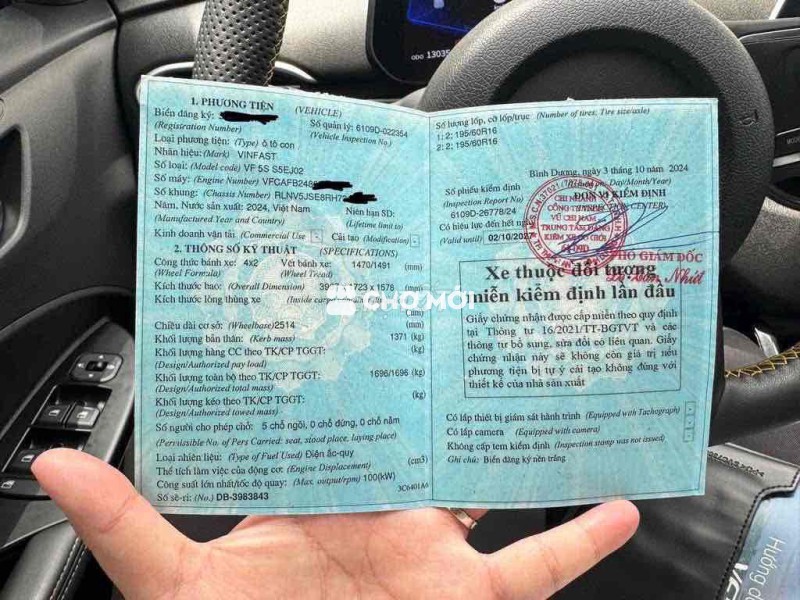 ODO 13035
1. PHƯƠNG TIỆN (VEHICLE)
Biển đăng ký:
(Registration Number)
Số quản lý: 6109D-022354
(Vehicle Inspection No.)
Loại phương tiện: (Type) ô tô con
Nhãn hiệu: (Mark) VINFAST
Số loại: (Model code) VF 5S S5EJ02
Số máy: (Engine Number) VFCAFB248
Số khung: (Chassis Number) RLNV5JSE8RH7
Năm, Nước sản xuất: 2024, Việt Nam
(Manufactured Year and Country)
Niên hạn SD:
(Lifetime limit to)
Kinh doanh vận tải: (Commercial Use) - Cải tạo (Modification) -
2. THÔNG SỐ KỸ THUẬT (SPECIFICATIONS)
Công thức bánh xe: 4x2 Vết bánh xe: 1470/1491 (mm)
(Wheel Formula) (Wheel Tread)
Kích thước bao: (Overall Dimension) 1723 x 1576 (mm)
Kích thước lòng thùng xe (Inside
(mm)
Chiều dài cơ sở: (Wheelbase) 2514 (mm)
Khối lượng bản thân: (Kerb mass) 1371 (kg)
Khối lượng hàng CC theo TK/CP TGGT: (kg)
(Design/Authorized pay load)
Khối lượng toàn bộ theo TK/CP TGGT: 1696/1696 (kg)
(Design/Authorized total mass)
Khối lượng kéo theo TK/CP TGGT: (kg)
(Design/Authorized towed mass)
Số người cho phép chở: 5 chỗ ngồi, 0 chỗ đứng, 0 chỗ nằm
(Permissible No. of Pers Carried: seat, stood place, laying place)
Loại nhiên liệu: (Type of Fuel Used) Điện ắc-quy
Thể tích làm việc của động cơ: (Engine Displacement) (cm3)
Công suất lớn nhất/tốc độ quay: (Max. output/rpm) 100(kW)
Số sê-ri: (No.) DB-3983843
3C6401A6
Số lượng lốp, cỡ lốp/trục (Number of tires; Tire size/axle)
1: 2; 195/60R16
2: 2; 195/60R16
Bình Dương, ngày 3 tháng 10 năm 2024
Day/Month/Year)
Số phiếu kiểm định
(Inspection Report No)
6109D-26778/24
ĐƠN VỊ KIỂM ĐỊNH
(INSPECTION CENTER)
Có hiệu lực đến hết ngày
(Valid until) 02/10/2027
CHI NHÁNH
CÔNG TY
VŨ CHÍ NAM
TRUNG TÂM ĐĂNG
KIỂM XE CƠ GIỚI
PHÓ GIÁM ĐỐC
Xe thuộc đối tượng
miễn kiểm định lần đầu
Giấy chứng nhận được cấp miễn theo quy định
tại Thông tư 16/2021/TT-BGTVT và các
thông tư bổ sung, sửa đổi có liên quan. Giấy
chứng nhận này sẽ không còn giá trị nếu
phương tiện bị tự ý cải tạo không đúng với
thiết kế của nhà sản xuất
Có lắp thiết bị giám sát hành trình (Equipped with Tachograph) -
Có lắp camera (Equipped with camera) -
Không cấp tem kiểm định (Inspection stamp was not issued) -
Ghi chú: Biển đăng ký nền trắng
CHỢ MỚI
Hướng d